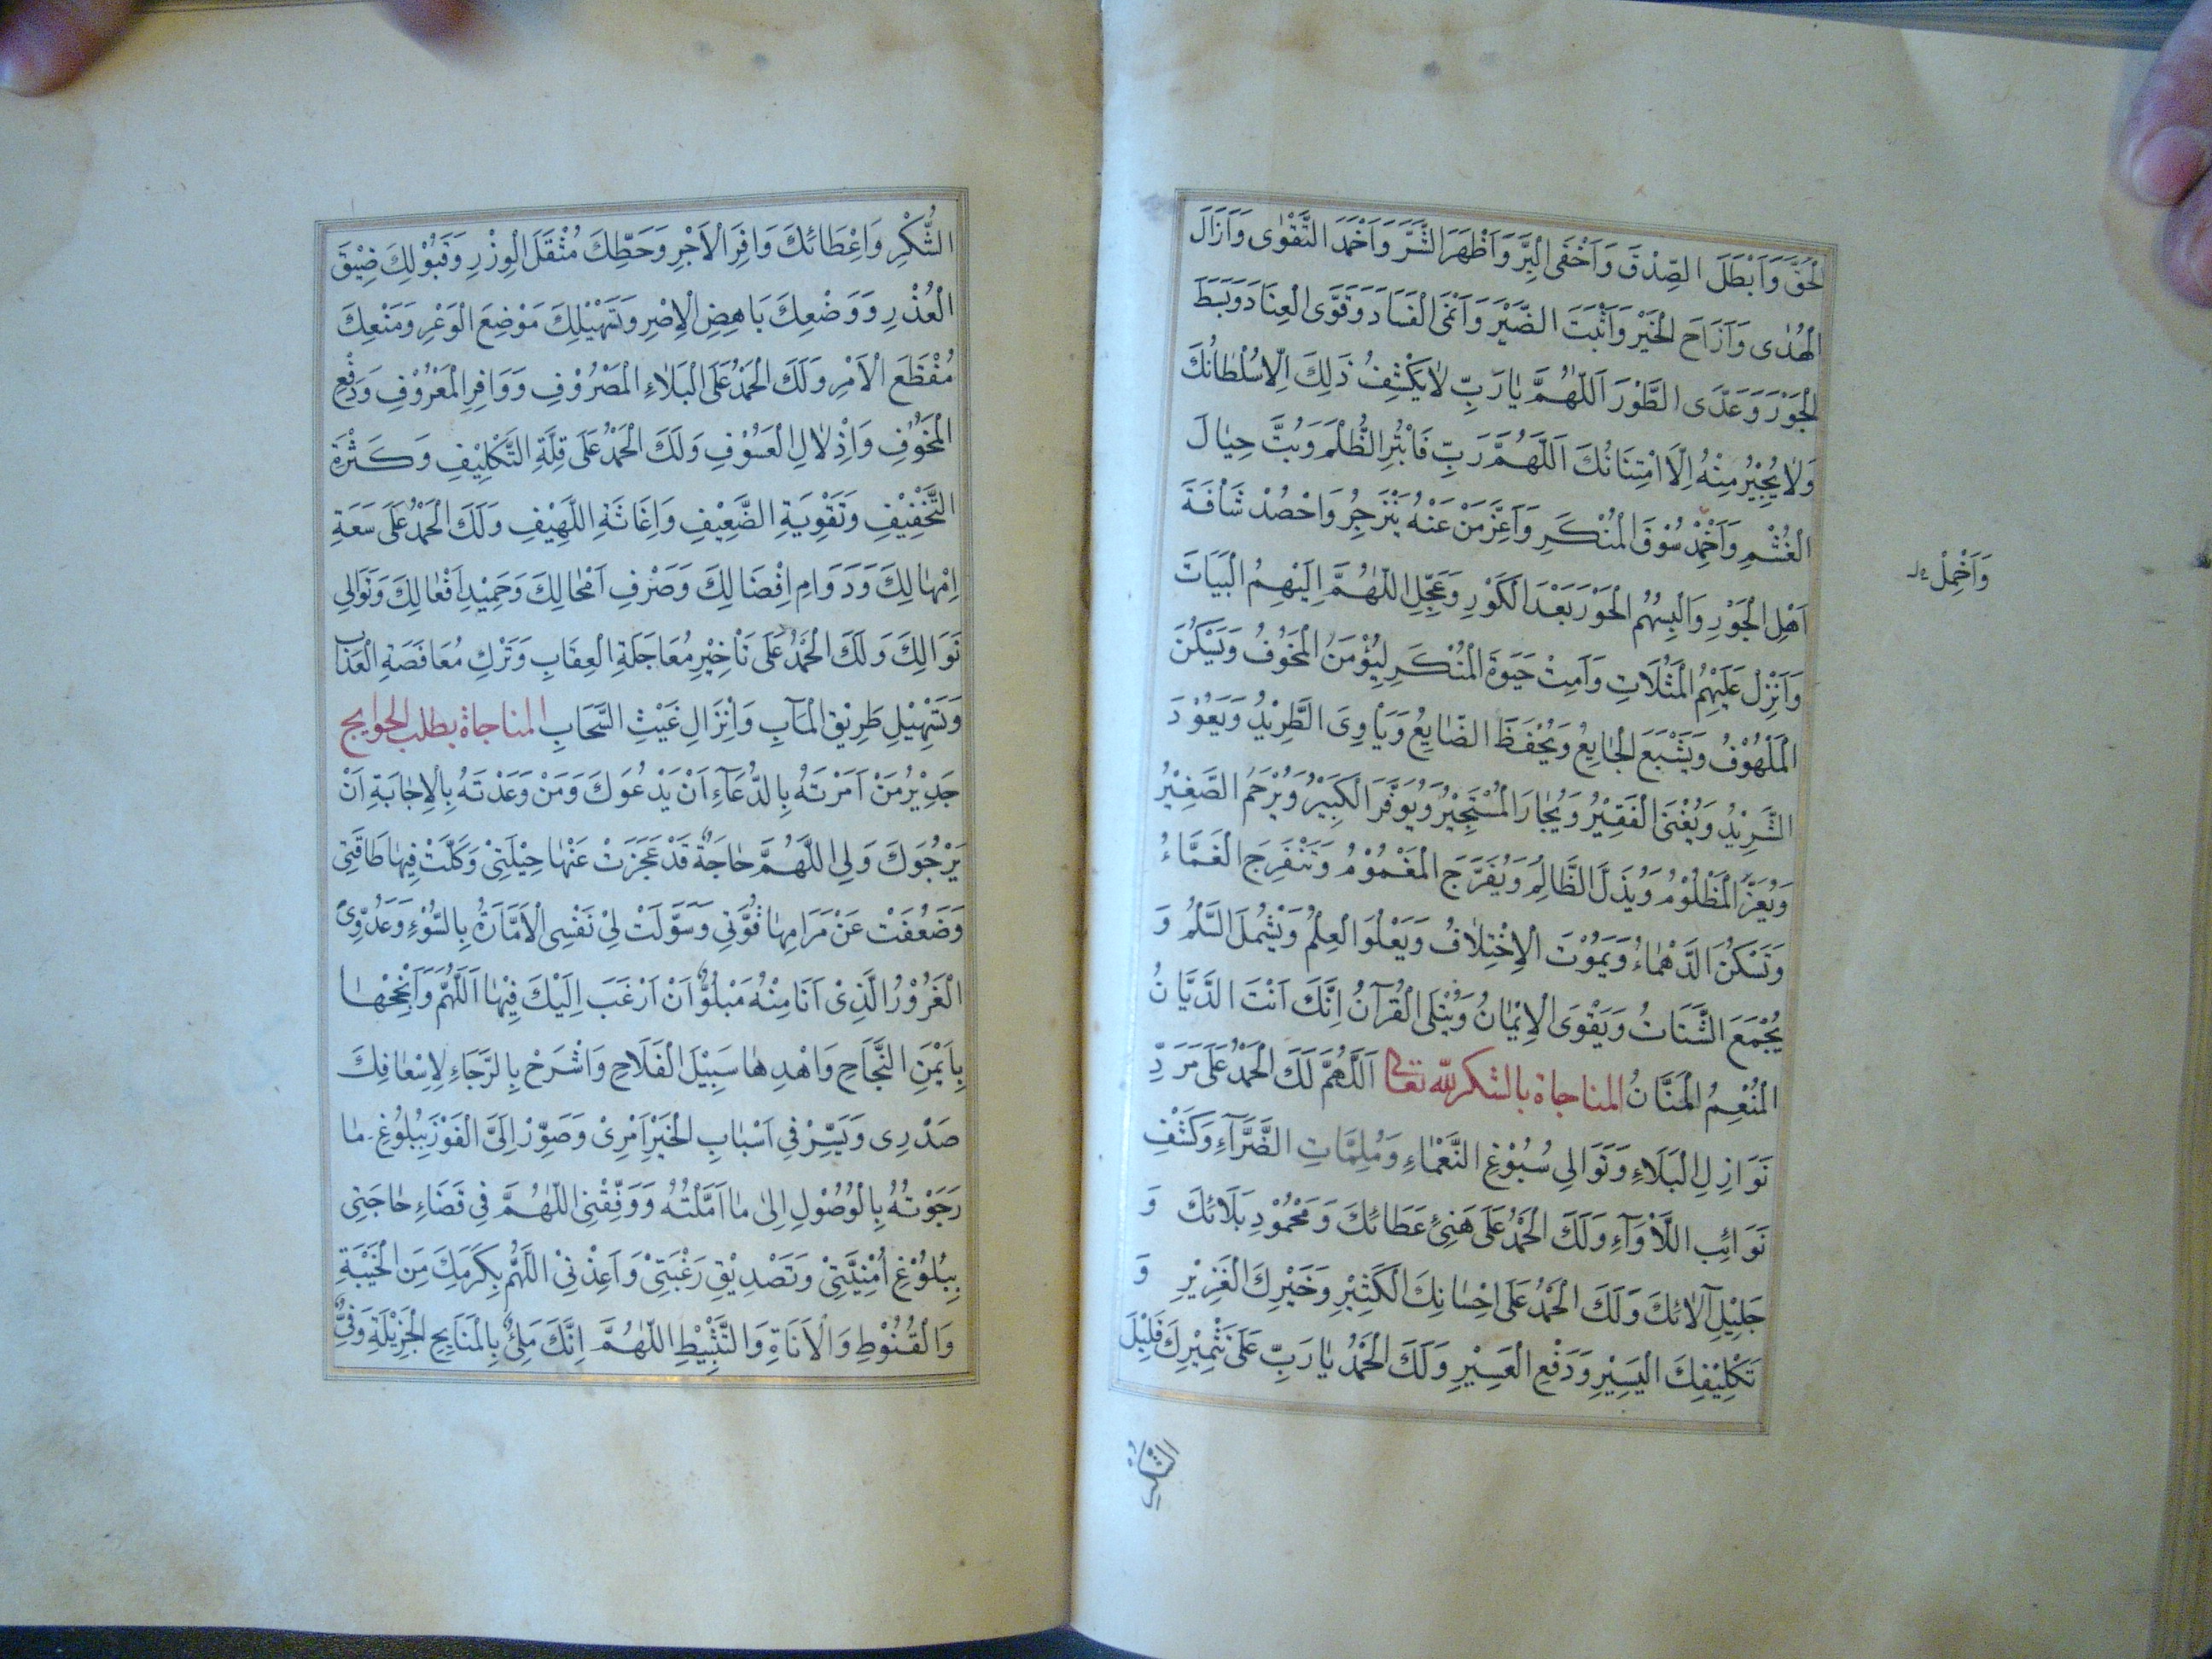 الْحَقَّ وَاَبْطَلَ الصِّدْقَ وَاَخْفَى الْبِرَّ وَاَظْهَرَ الشَّرَّ وَاَخْمَدَ التَّقْوٰى وَاَزَالَ
الْهُدٰى وَاَزَاحَ الْخَيْرَ وَاَثْبَتَ الضَّيْرَ وَاَنْمَى الْفَسَادَ وَقَوَّى الْعِنَادَ وَبَسَطَ
الْجَوْرَ وَعَدَّى الطَّوْرَ اَللّٰهُمَّ يٰا رَبِّ لٰا يَكْشِفُ ذَلِكَ اِلّٰا سُلْطٰانُكَ
وَلٰا يُجْيِرُ مِنْهُ اِلَّا امْتِنَانُكَ اَللّٰهُمَّ رَبِّ فَابْتُرِ الظُّلْمَ وَبُتَّ حِبٰالَ
الْغَشْمِ وَاَخْمِدْ سُوْقَ الْمُنْكَرِ وَاَعِزَّ مَنْ عَنْهُ يَنْزَجِرُ وَاحْصُدْ شَاْفَةَ
وَاَخْمِلْ
اَهْلِ الْجَوْرِ وَاَلْبِسْهُمُ الْحَوْرَ بَعْدَ الْكَوْرِ وَعَجِّلِ اللّٰهُمَّ اِلَيْهِمُ الْبَيَاتَ
وَاَنْزِلْ عَلَيْهِمُ الْمَثُلَاتِ وَاَمِتْ حَيٰوةَ الْمُنْكَرِ لِيُؤْمَنَ الْمَخُوفُ وَيَسْكُنَ
الْمَلْهُوْفُ وَيَشْبَعَ الْجٰايِعُ وَيُحْفَظَ الضّٰايِعُ وَيَاْوِىَ الطَّرِيْدُ وَيَعُوْدَ
الشَّرِيْدُ وَيُغْنَى الْفَقِيْرُ وَيُجٰارَ الْمُسْتَجِيْرُ وَيُوَقَّرَ الْكَبِيْرُ وَيُرْحَمَ الصَّغِيْرُ
وَيُعَزَّ الْمَظْلُوْمُ وَيُذَلَّ الظَّالِمُ وَيُفَرَّجَ الْمَغْمُوْمُ وَتَنْفَرِجَ الْغَمَّاءُ
وَتَسْكُنَ الدَّهْمٰاءُ وَيَمُوْتَ الْاِخْتِلٰافُ وَيَعْلُوَ الْعِلْمُ وَيَشْمُلَ السَّلْمُ وَ
يُجْمَعَ الشَّتَاتُ وَيَقْوَى الْاِيْمٰانُ وَيُتْلَى الْقُرآنُ اِنَّكَ اَنْتَ الدَّيَّانُ
الْمُنْعِمُ الْمَنَّانُ المناجاة بالشكر لله تعالى اَللّٰهُمَّ لَكَ الْحَمْدُ عَلَى مَرَدِّ
نَوَازِلِ الْبَلَاءِ وَتَوَالِى سُبُوْغِ النَّعْمٰاءِ وَمُلِمَّاتِ الضَّرَّآءِ وَكَشْفِ
نَوَائِبِ اللَّاْوَآءِ وَلَكَ الْحَمْدُ عَلَى هَنِئِ عَطَائِكَ وَمَحْمُوْدِ بَلَائِكَ وَ
جَلِيْلِ آلٰائِكَ وَلَكَ الْحَمْدُ عَلَى اِحْسٰانِكَ الْكَثِيْرِ وَخَيْرِكَ الْغَزِيْرِ وَ
تَكْلِيْفِكَ الْيَسِيْرِ وَدَفْعِ الْعَسِيْرِ وَلَكَ الْحَمْدُ يٰا رَبِّ عَلَى تَثْمِيْرِكَ قَلِيْلَ
الشُّكْرِ
الشُّكْرِ وَاِعْطَائِكَ وَافِرَ الْاَجْرِ وَحَطِّكَ مُثْقَلَ الْوِزْرِ وَقَبُوْلِكَ ضِيْقَ
الْعُذْرِ وَوَضْعِكَ بَاهِضَ الْاِصْرِ وَتَسْهِيْلِكَ مَوْضِعَ الْوَعْرِ وَمَنْعِكَ
مُفْظَعَ الْاَمْرِ وَلَكَ الْحَمْدُ عَلَى الْبَلٰاءِ الْمَصْرُوْفِ وَوَافِرِ الْمَعْرُوْفِ وَدَفْعِ
الْمَخُوْفِ وَاِذْلٰالِ الْعَسُوْفِ وَلَكَ الْحَمْدُ عَلَى قِلَّةِ التَّكْلِيْفِ وَكَثْرَةِ
التَّخْفِيْفِ وَتَقْوِيَةِ الضَّعِيْفِ وَاِغَاثَةِ اللَّهِيْفِ وَلَكَ الْحَمْدُ عَلَى سَعَةِ
اِمْهٰالِكَ وَدَوَامِ اِفْضَالِكَ وَصَرْفِ اَمْحٰالِكَ وَحَمِيْدِ اَفْعٰالِكَ وَتَوَالِي
نَوَالِكَ وَلَكَ الْحَمْدُ عَلَى تَاْخِيْرِ مُعَاجَلَةِ الْعِقَابِ وَتَرْكِ مُغَافَصَةِ الْعَذَابِ
وَتَسْهِيْلِ طَرِيْقِ الْمَآبِ وَاِنْزَالِ غَيْثِ السَّحَابِ المناجاة بطلب الحوايج
جَدِيْرٌ مَنْ اَمَرْتَهُ بِالدُّعَآءِ اَنْ يَدْعُوَكَ وَمَنْ وَعَدْتَهُ بِالْاِجٰابَةِ اَنْ
يَرْجُوَكَ وَلِي اللّٰهُمَّ حٰاجَةٌ قَدْ عَجَزَتْ عَنْهٰا حِيْلَتِىْ وَكَلَّتْ فِيهٰا طَاقَتِى
وَضَعُفَتْ عَنْ مَرَامِهٰا قُوَّتِي وَسَوَّلَتْ لِىْ نَفْسِى الْاَمّٰارَةُ بِالسُّوْءِ وَعَدُوِّىَ
الْغَرُوْرُ الَّذِىْ اَنَا مِنْهُ مَبْلُوٌّ اَنْ اَرْغَبَ اِلَيْكَ فِيْهٰا اَللّٰهُمَّ وَاَنْجِحْهٰا
بِاَيْمَنِ النَّجَاحِ وَاهْدِهٰا سَبِيْلَ الْفَلَاحِ وَاشْرَحْ بِالرَّجَاءِ لِاِسْعٰافِكَ
صَدْرِى وَيَسِّرْ فِي اَسْبٰابِ الْخَيْرِ اَمْرِىْ وَصَوِّرْ اِلَىَّ الْفَوْزَ بِبُلُوْغِ مٰا
رَجَوْتُهُ بِالْوُصُوْلِ اِلٰى مٰا اَمَّلْتُهُ وَوَفِّقْنِى اللّٰهُمَّ فِي قَضَاءِ حٰاجَتِى
بِبُلُوْغِ اُمْنِيَّتِىْ وَتَصْدِيْقِ رَغْبَتِىْ وَاَعِذْنِىْ اللّٰهُمَّ بِكَرَمِكَ مِنَ الْخَيْبَةِ
وَالْقُنُوْطِ وَالْاَنَاةِ وَالتَّثْبِيْطِ اللّٰهُمَّ اِنَّكَ مَلِئٌ بِالْمَنَايِحِ الْجَزِيْلَةِ وَفِىٌّ